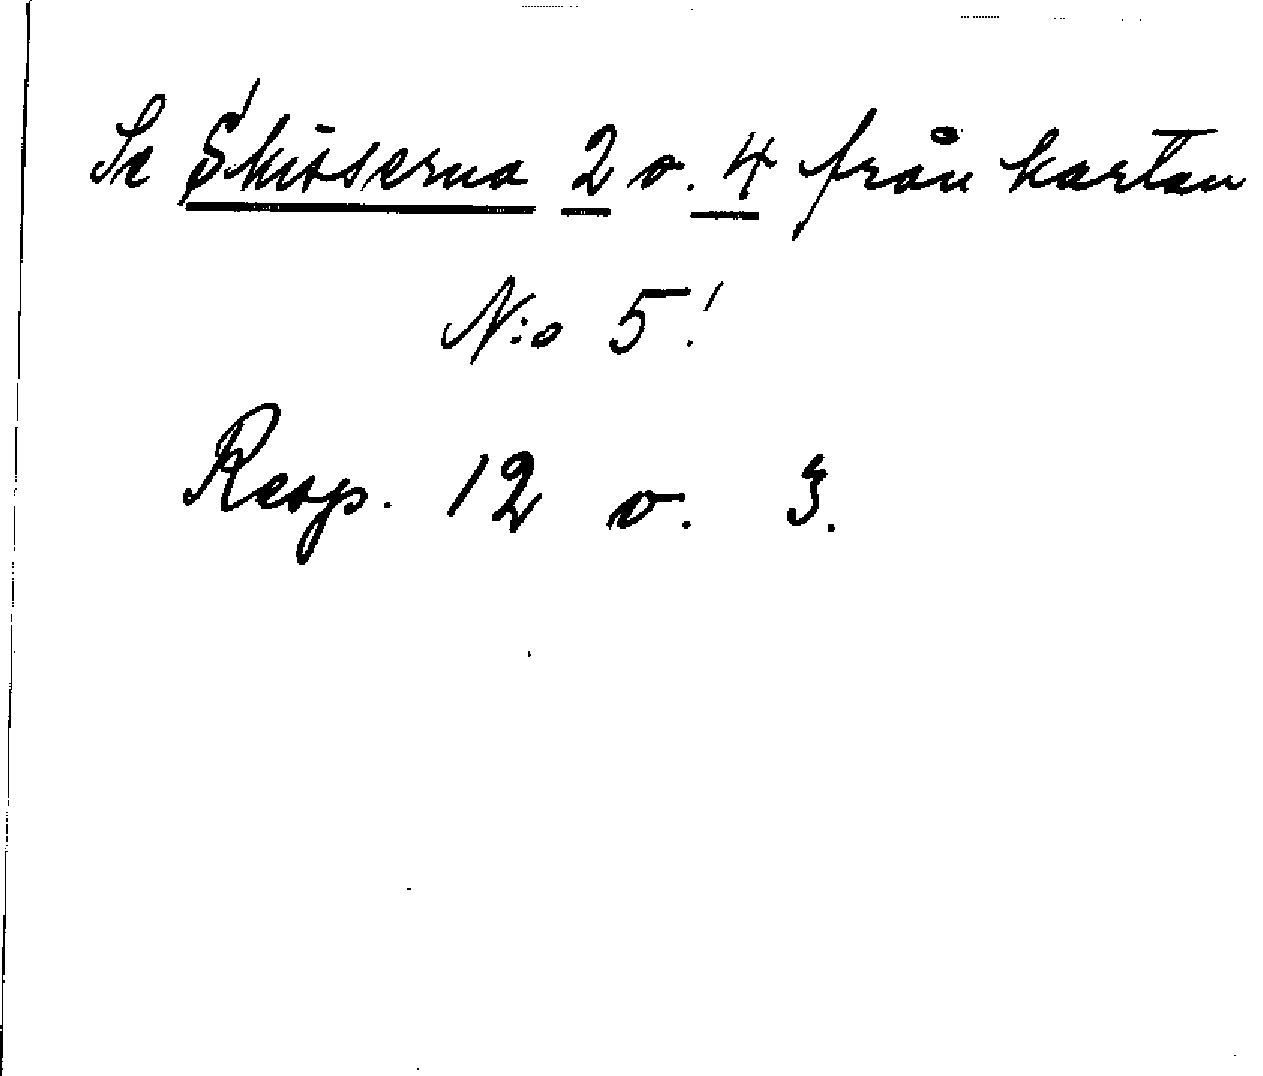 Se Skisserna 2 o. 4 från kartan
N:o 5!
Resp. 12 o. 3.